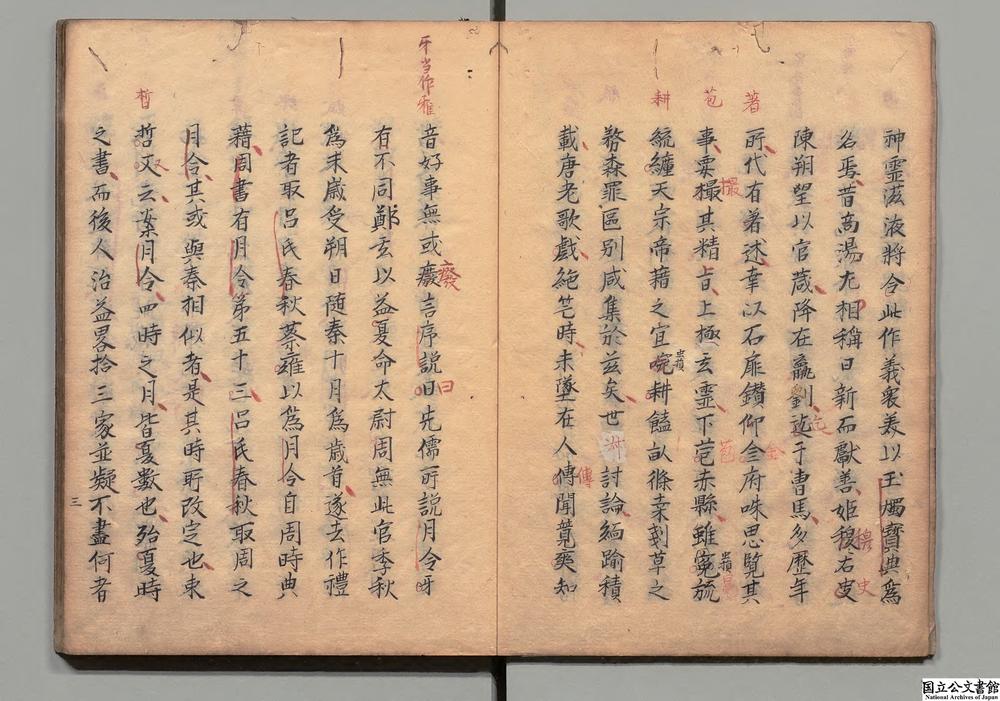 神霊滋液将令此作義褎美以玉燭寶典爲
名焉昔商湯左相稱曰新而獻善姬穆右史
陳朔望以官箴降在嬴劉迄于曹馬多歷年
所代有著述幸以石扉鑽仰金府味思覽其
事要撮其精旨上極玄霊下苞赤縣雖寃毓
統纏天宗帝藉之宜 耕饁畝 桒刬草之
務森罪區別咸集於兹矣世 討論緬踰積
載唐老歌戯絶笔時未墜在人傳聞蓂莢知
音好事無或癈言序説曰先儒所説月令
有不同鄭玄以益夏命太尉周無此官季秋
爲来歳受朔日随秦十月爲歳首遂去作禮
記者取吕氏春秋蔡雍以爲月令自周時典
藉周書有月令第五十三吕氏春秋取周之
月令其或與秦相似者是其時所改定也束
晢又云案月令四時之月皆夏數也殆夏時
之書而後人治益畧拾三家並疑不盡何者
著
苞
耕
牙当作雅
晢
三
国立公文書館
National Archives of Japan